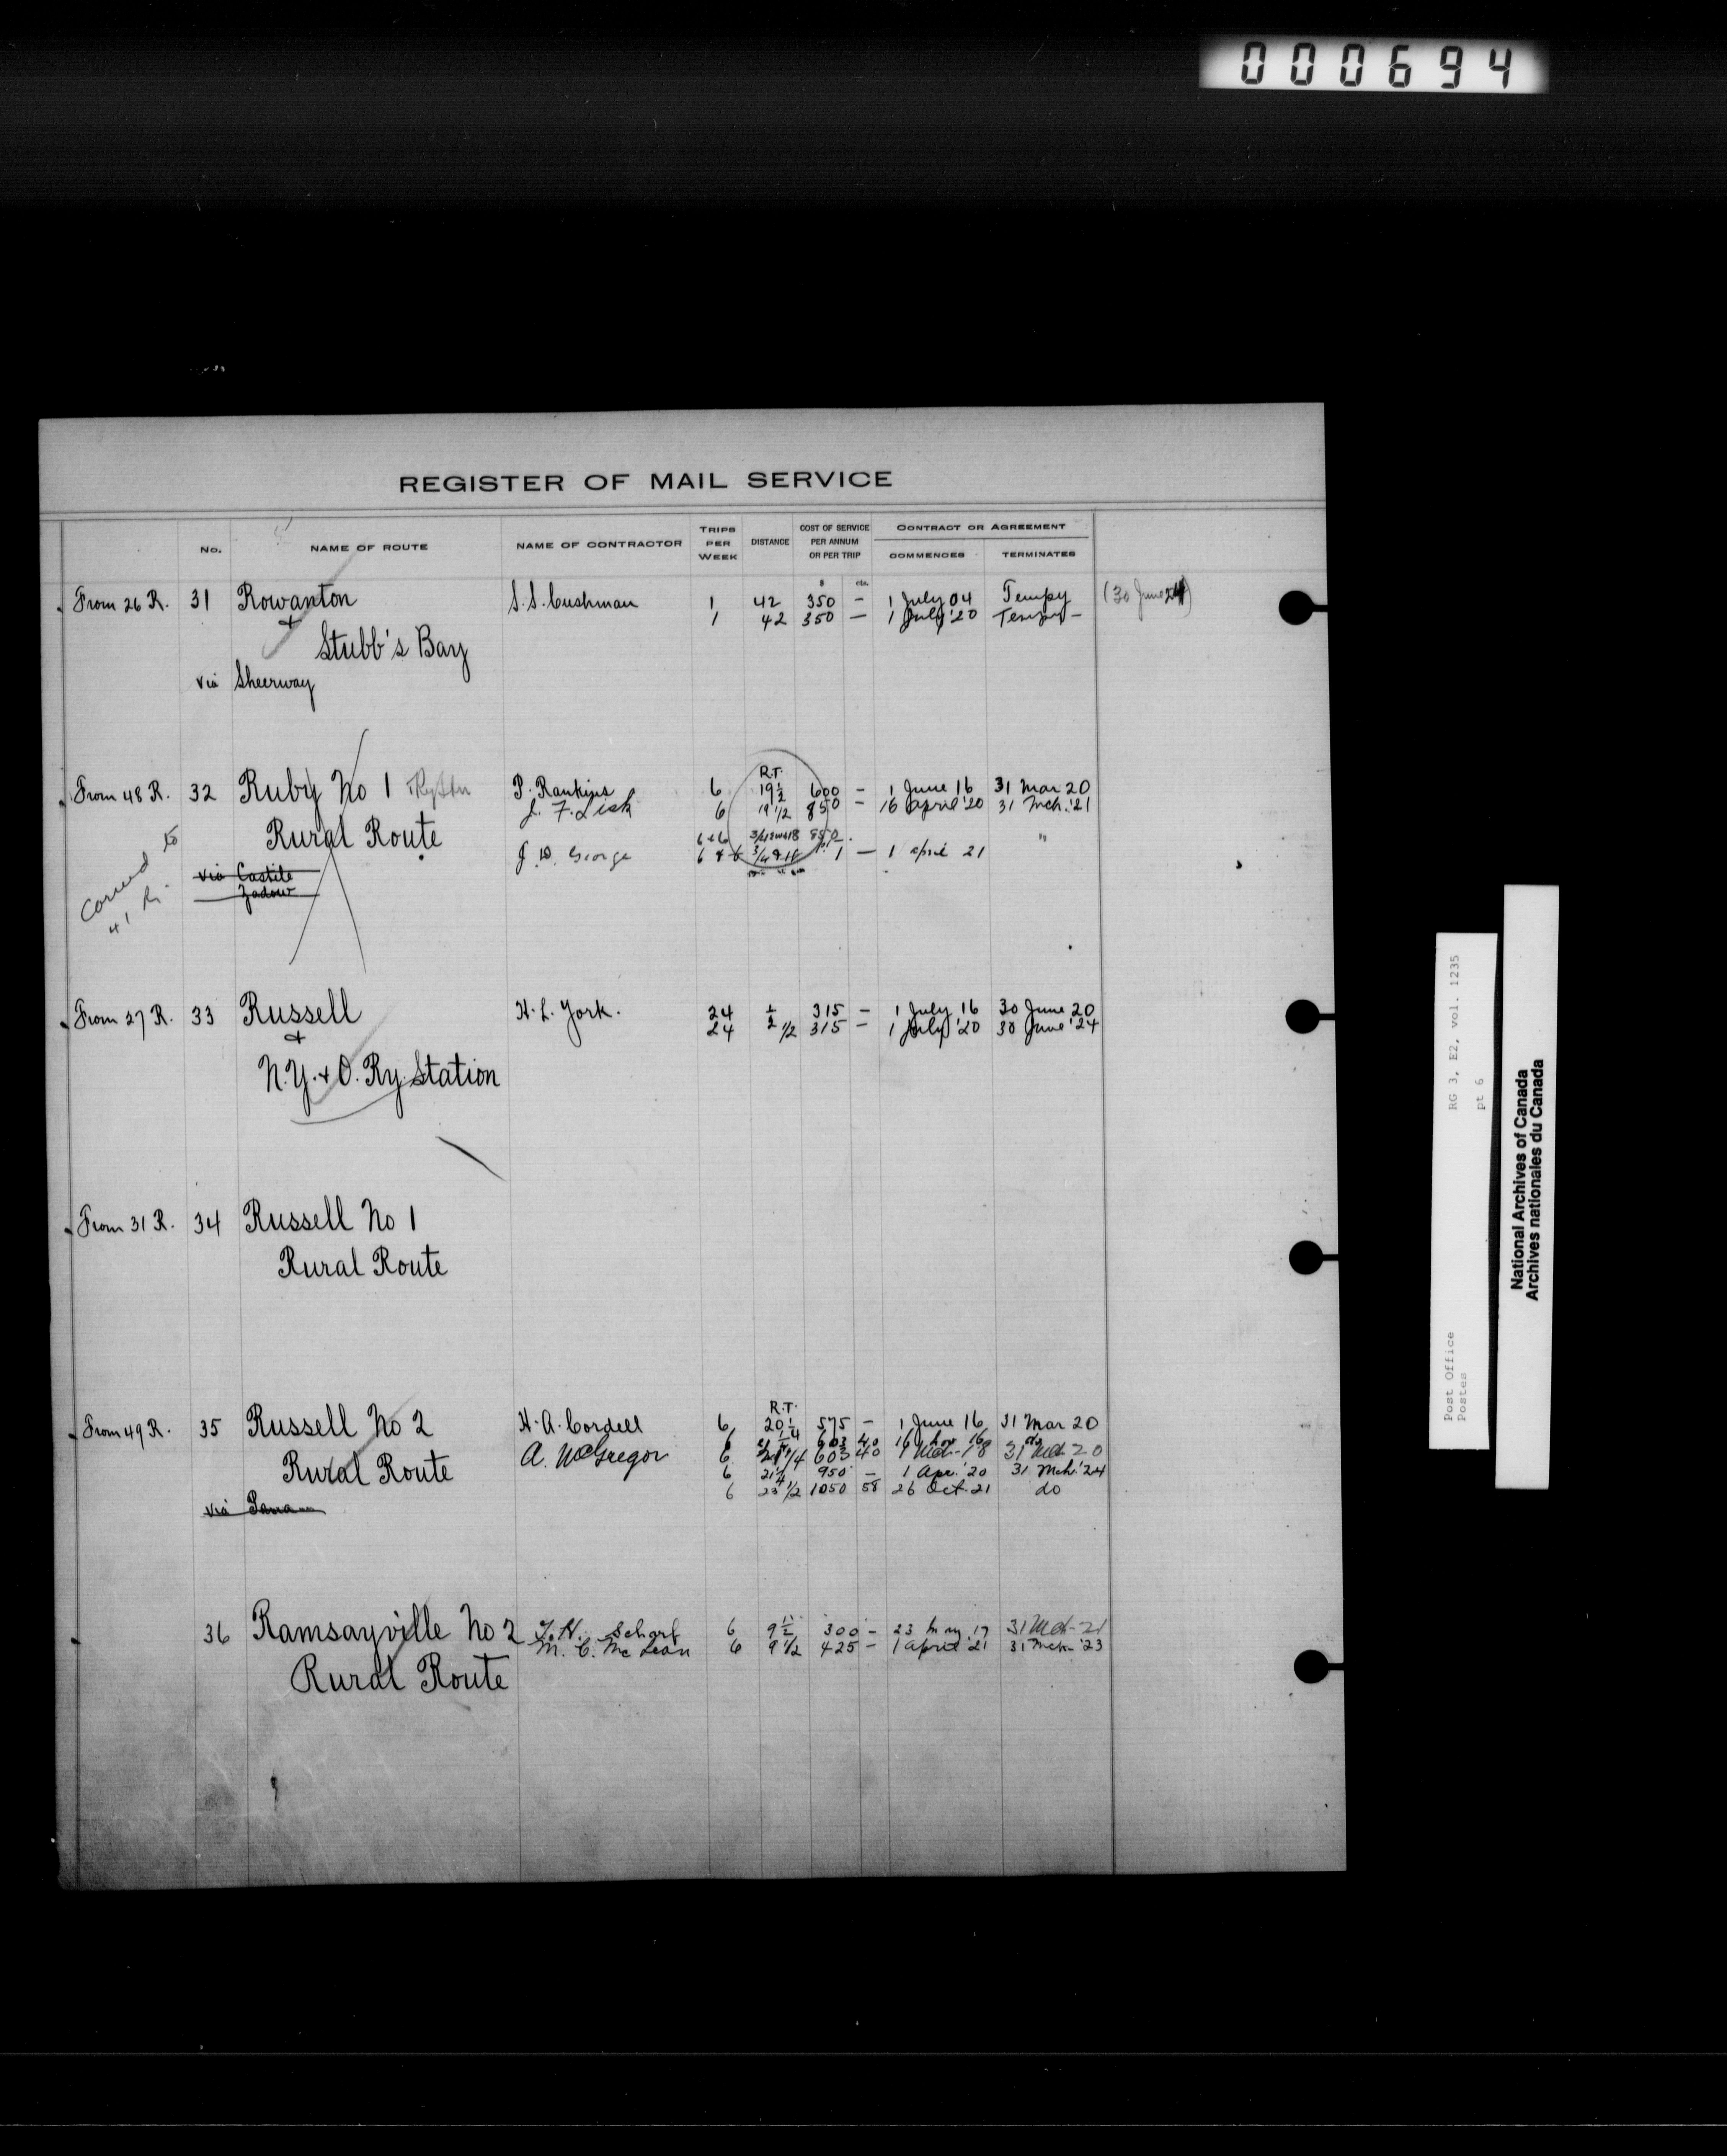 000694
REGISTER OF MAIL SERVICE
No. NAME OF ROUTE NAME OF CONTRACTOR TRIPS PER WEEK DISTANCE COST OF SERVICE PER ANNUM OR PER TRIP CONTRACT OR AGREEMENT COMMENCES TERMINATES
$ cts.
From 26 R. 31 Rowanton S.S. Cushman 1 42 350 – 1 July 04 Tempy (30 June 24)
& 1 42 350 – 1 July '20 Tempy –
Stubb's Bay
via Sheerway
R.T.
From 48 R. 32 Ruby No 1 P. Rankins 6 19 1/2 600 – 1 June 16 31 Mar 20
J. F. Lisk 6 19 1/2 850 – 16 April '20 31 Mch. '21
Rural Route 6 & 6 850
J. D. George 6 & 6 1 – 1 April 21 "
via Castile
Zadow
to
41 R.
From 27 R. 33 Russell H. L. York. 24 1/2 315 – 1 July 16 30 June 20
& 24 1/2 315 – 1 July '20 30 June '24
N.Y. & O. Ry. Station
From 31 R. 34 Russell No 1
Rural Route
R.T.
From 49 R. 35 Russell No 2 H. A. Cordell 6 20 1/4 575 – 1 June 16 31 Mar 20
6 603 40 16 Nov 16 do
Rural Route A. McGregor 6 21 1/4 603 40 1 Mch - 18 31 Mch 20
6 21 1/4 950 – 1 Apr. '20 31 Mch. '24
6 23 1/2 1050 58 26 Oct - 21 do
via
36 Ramsayville No 2 T. H. Scharf 6 9 1/2 300 – 23 May 17 31 Mch - 21
M. C. McLean 6 9 1/2 425 – 1 April '21 31 Mch - '23
Rural Route
RG 3, E2, vol. 1235
pt 6
Post Office
Postes
National Archives of Canada
Archives nationales du Canada